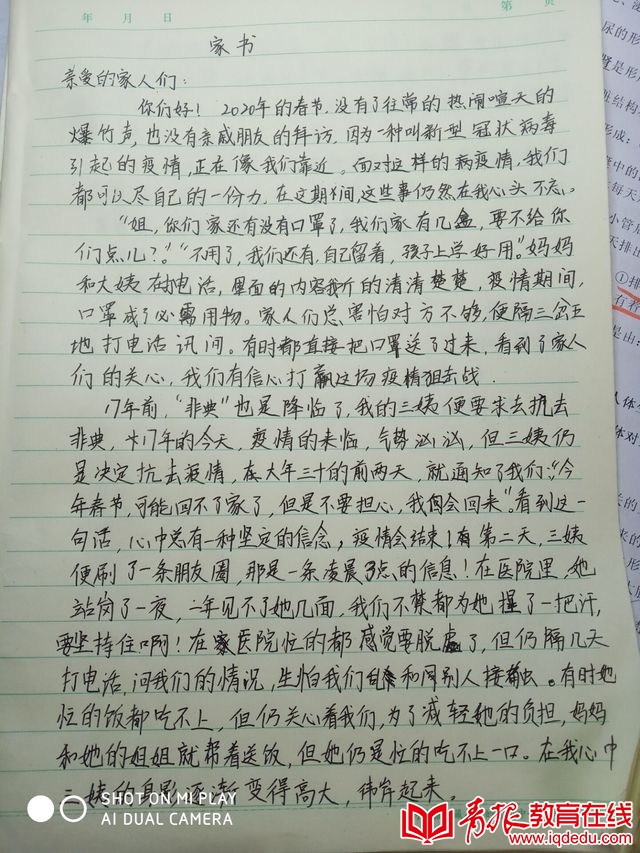 年 月 日
第 页
家书
亲爱的家人们：
你们好！2020年的春节，没有了往常的热闹喧天的
爆竹声，也没有亲戚朋友的拜访，因为一种叫新型冠状病毒
引起的疫情，正在像我们靠近。面对这样的病疫情，我们
都可以尽自己的一份力，在这期间，这些事仍然在我心头不忘。
“姐，你们家还有没有口罩了，我们家有几盒，要不给你
们点儿？”“不用了，我们还有，自己留着，孩子上学好用。”妈妈
和大姨在打电话，里面的内容我听的清清楚楚，疫情期间，
口罩成了必需用物。家人们总害怕对方不够，便隔三岔五
地打电话讯问。有时都直接把口罩送了过来，看到了家人
们的关心，我们有信心打赢这场疫情狙击战．
17年前，“非典”也是降临了，我的三姨便要求去抗击
非典，17年的今天，疫情的来临，气势汹汹，但三姨仍
是决定抗击疫情，在大年三十的前两天，就通知了我们：“今
年春节，可能回不了家了，但是不要担心，我们会回来”。看到这一
句话，心中总有一种坚定的信念，疫情会结束！有第二天，三姨
便刷了一条朋友圈，那是一条凌晨3点的信息！在医院里，她
站岗了一夜，一年见不了她几面，我们不禁都为她握了一把汗，
要坚持住啊！在医院忙的都感觉要脱虚了，但仍隔几天
打电话，问我们的情况，生怕我们和同别人接触。有时她
忙的饭都吃不上，但仍关心着我们，为了减轻她的负担，妈妈
和她的姐姐就帮着送饭，但她仍是忙的吃不上一口。在我心中
三姨的身影逐渐变得高大，伟岸起来。
SHOT ON MI PLAY
AI DUAL CAMERA
青报教育在线
www.iqdedu.com
①排
有着
是由：